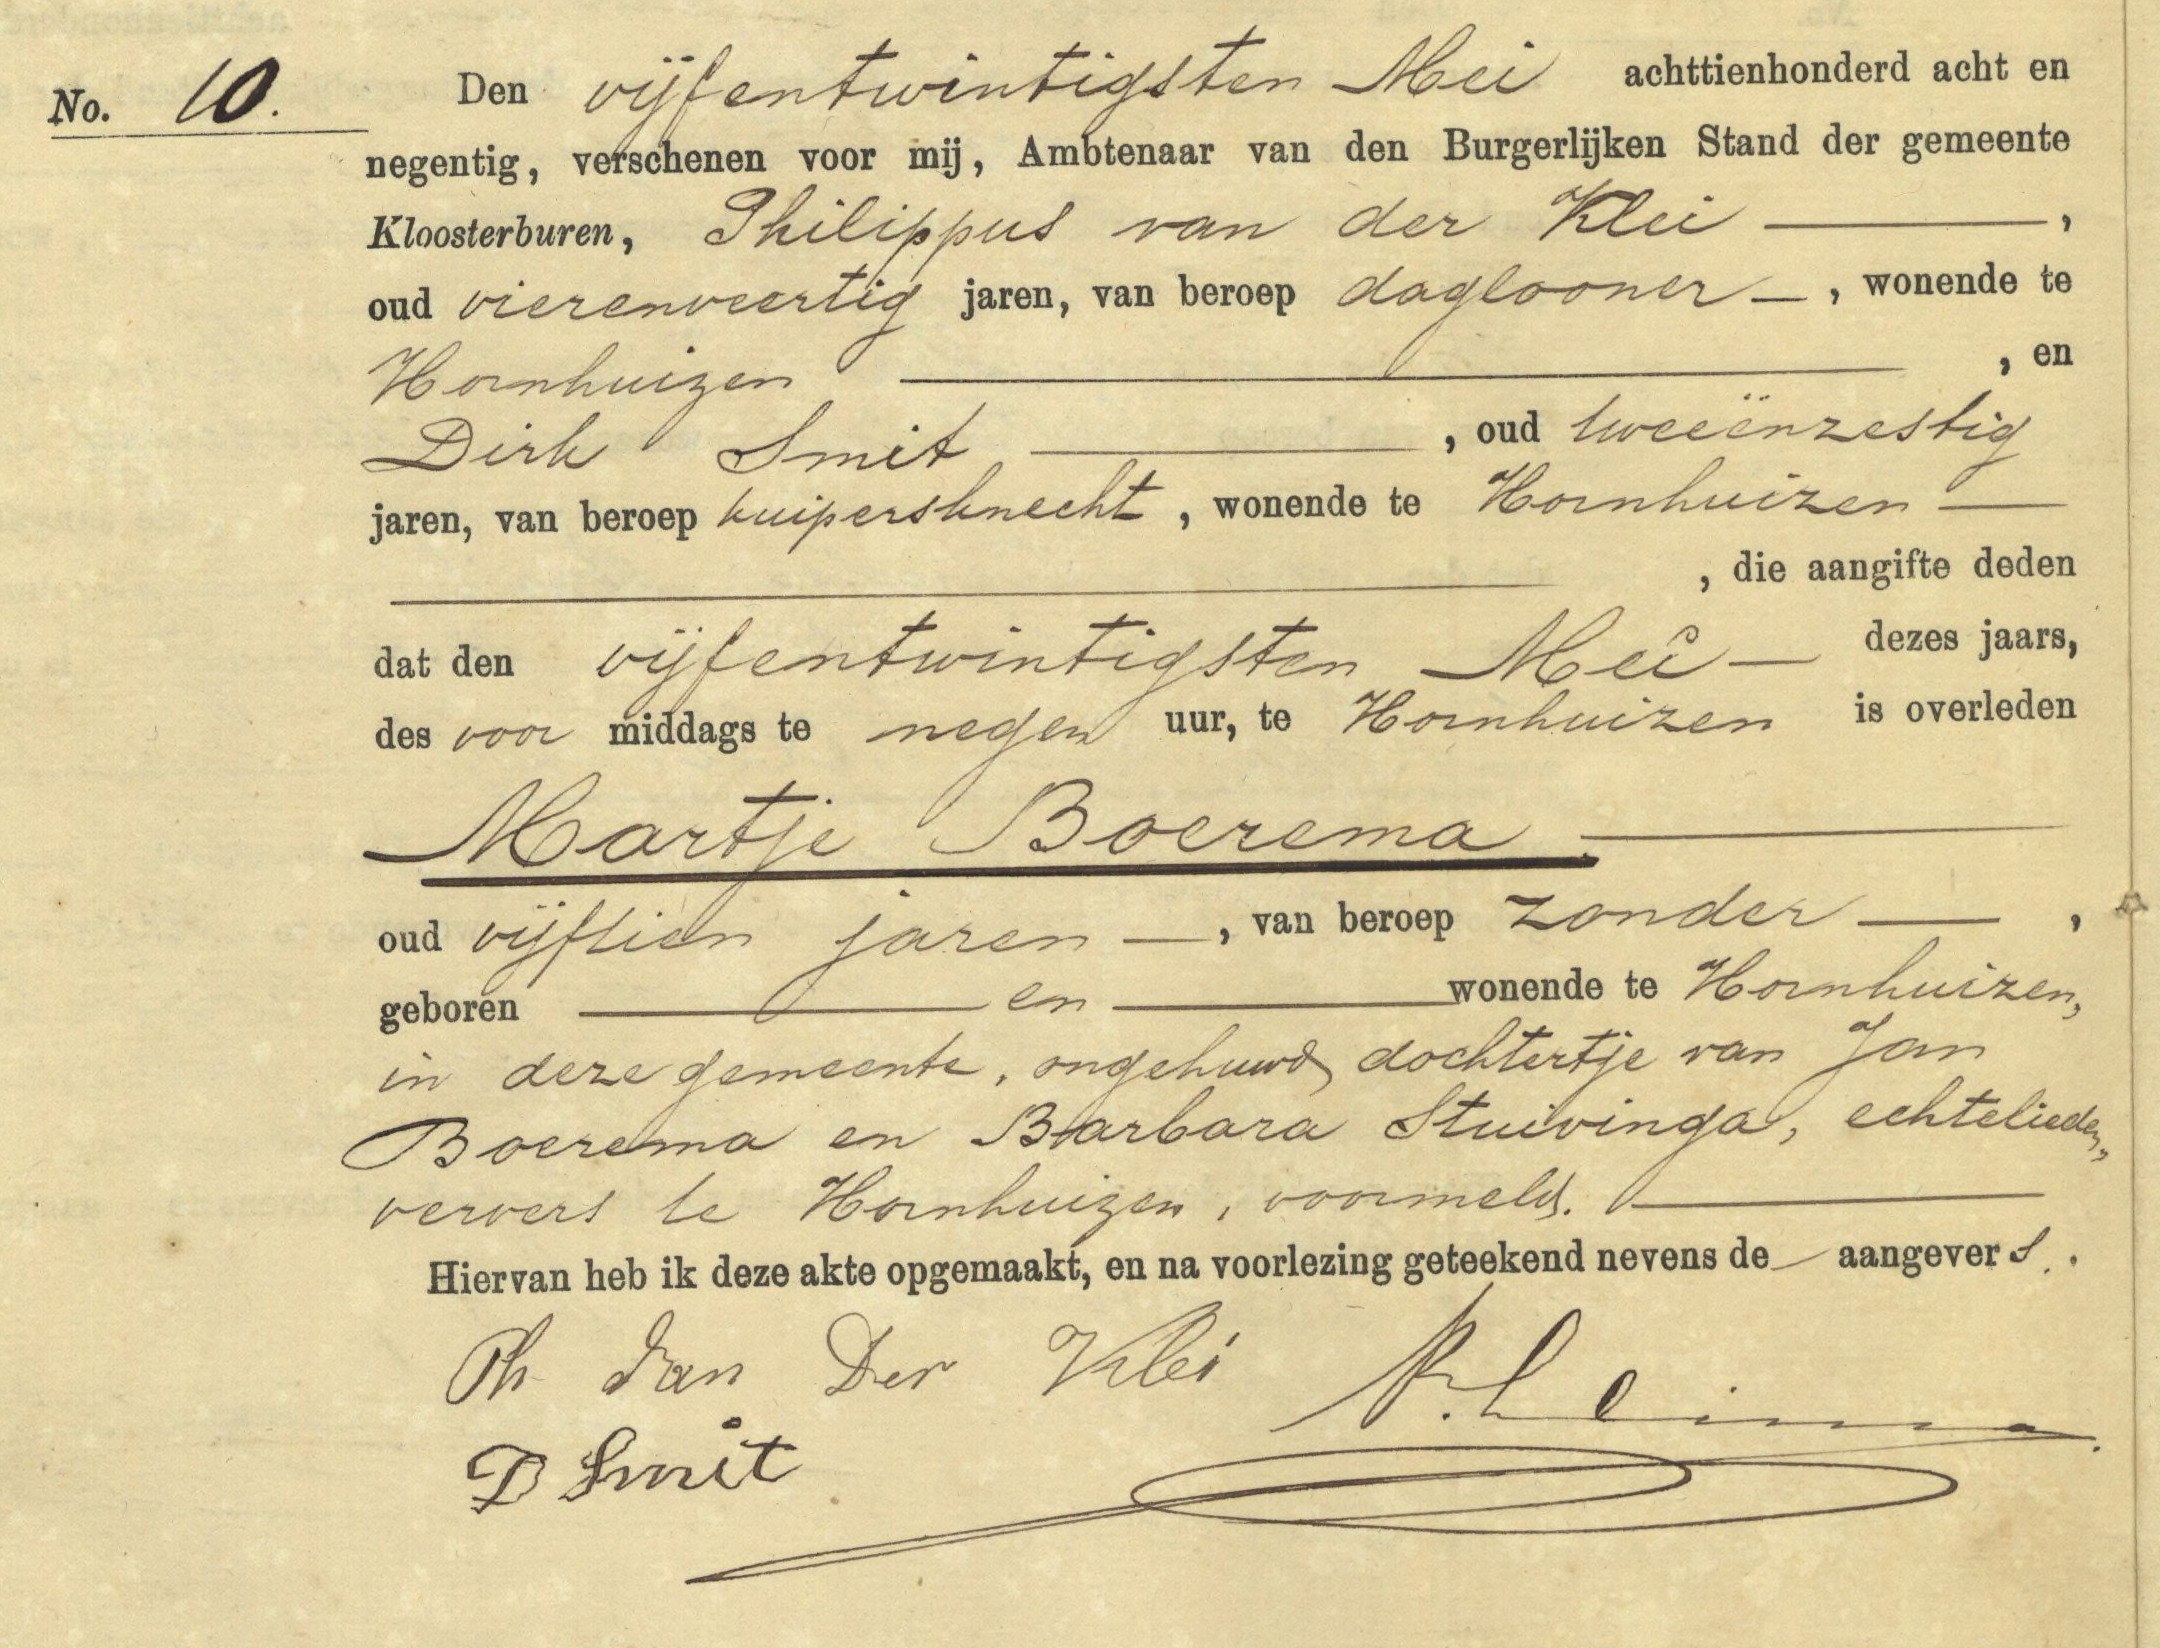 No. 10.
Den vijfentwintigsten Mei achttienhonderd acht en
negentig, verschenen voor mij, Ambtenaar van den Burgerlijken Stand der gemeente
Kloosterburen, Philippus van der Klei ,
oud vierenveertig jaren, van beroep daglooner , wonende te
Hornhuizen , en
Dirk Smit , oud tweeënzestig
jaren, van beroep kuipersknecht , wonende te Hornhuizen
, die aangifte deden
dat den vijfentwintigsten Mei dezes jaars,
des voor middags te negen uur, te Hornhuizen is overleden
Martje Boerema
oud vijftien jaren , van beroep zonder ,
geboren en wonende te Hornhuizen,
in deze gemeente, ongehuwd dochtertje van Jan
Boerema en Barbara Stuivinga, echtelieden,
ververs te Hornhuizen, voormeld.
Hiervan heb ik deze akte opgemaakt, en na voorlezing geteekend nevens de aangevers.
Ph Van Der Klei
D Smit